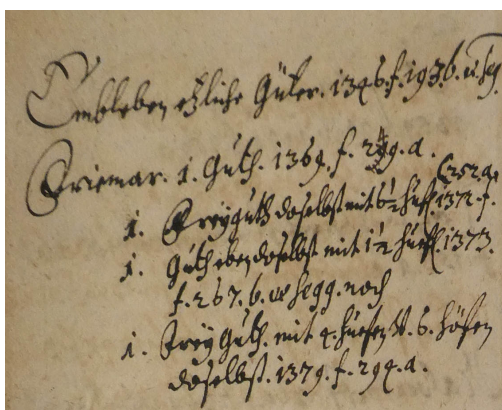 Embleben etzliche Güter. 1346. f. 193. b. u. seq.
Friemar. 1. Guth. 1369. f. 249. a.
1. Freyguth doselbst mit 6½ Huff. 1372. f. (252. a.
1. Guth eben doselbst mit 1½ Hueff. 1373.
f. 267. b. et segg. noch
1. Frey Guth. mit 4. Huefen u. 6. Höfen
doselbst. 1379. f. 294. a.